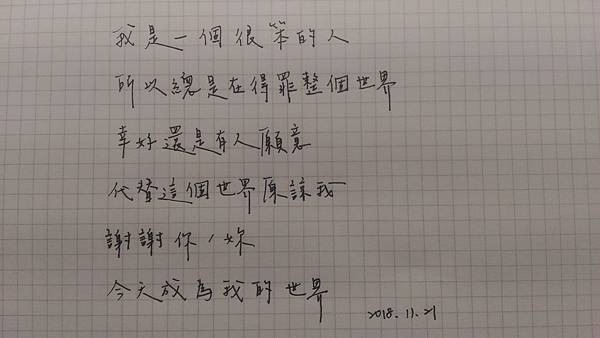 我是一個很笨的人
所以總是在得罪整個世界
幸好還是有人願意
代替這個世界原諒我
謝謝你,妳
今天成為我的世界
2018.11.21